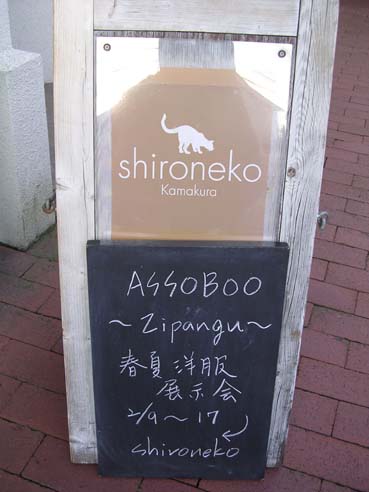 shironeko
Kamakura
ASSOBOO
～Zipangu～
春夏洋服
展示会
2/9～17
shironeko